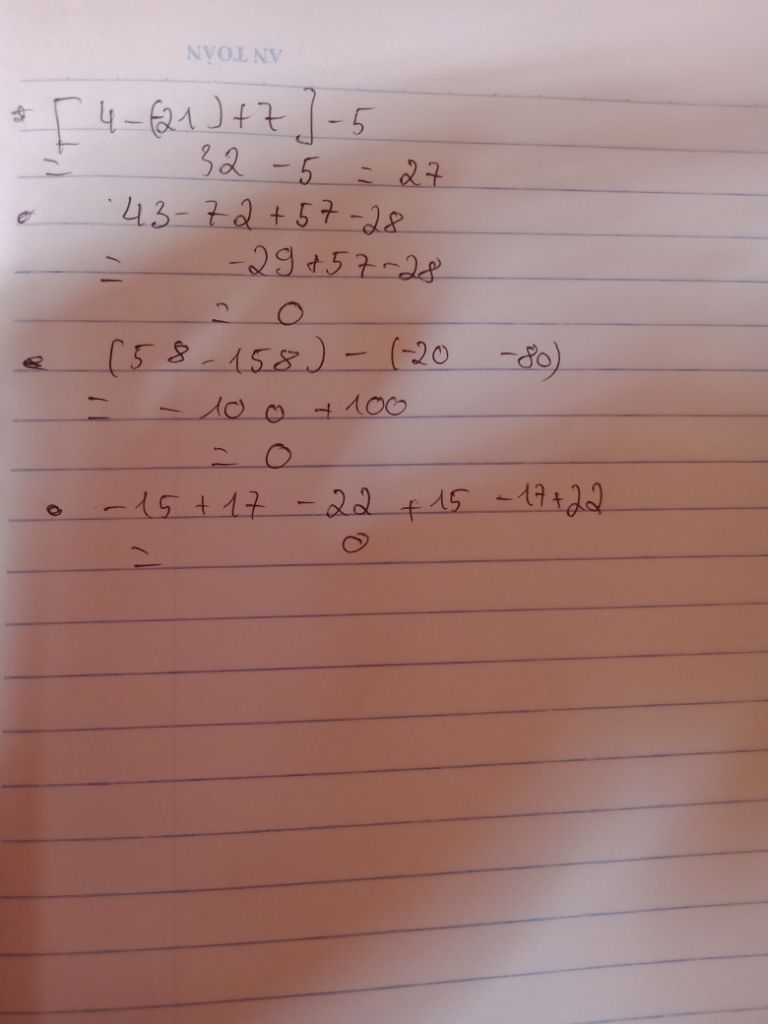 AN TOÀN
[ 4 - (-21) + 7 ] - 5
= 32 - 5 = 27
43 - 72 + 57 - 28
= -29 + 57 - 28
= 0
(58 - 158) - (-20 -80)
= - 100 + 100
= 0
-15 + 17 - 22 + 15 - 17 + 22
= 0